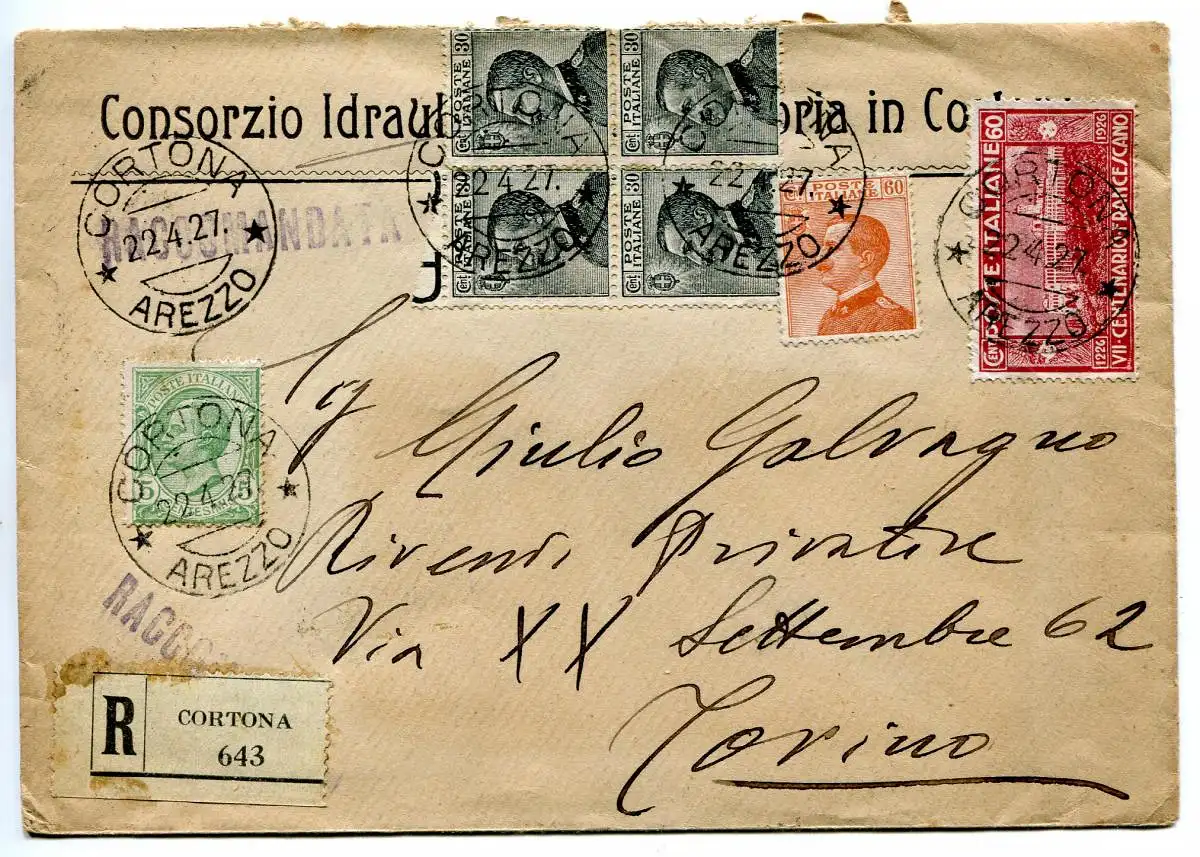 Consorzio Idraul oria in Co
CORTONA
22.4.27.
AREZZO
RACCOMANDATA
Cent. 30
POSTE ITALIANE
Cent. 30
POSTE ITALIANE
Cent. 30
POSTE ITALIANE
Cent. 30
POSTE ITALIANE
CORTONA
22.4.27.
AREZZO
CORTONA
22.4.27.
AREZZO
POSTE ITALIANE
60
CENT. 60
POSTE ITALIANE
1226 1926
VII-CENTENARIO FRANCESCANO
CORTONA
22.4.27.
AREZZO
POSTE ITALIANE
5 5
CENTESIMI
CORTONA
22.4.27
AREZZO
Sig Giulio Galvagno
Rivendi Privative
Via XX Settembre 62
Torino
RACCO
R
CORTONA
643